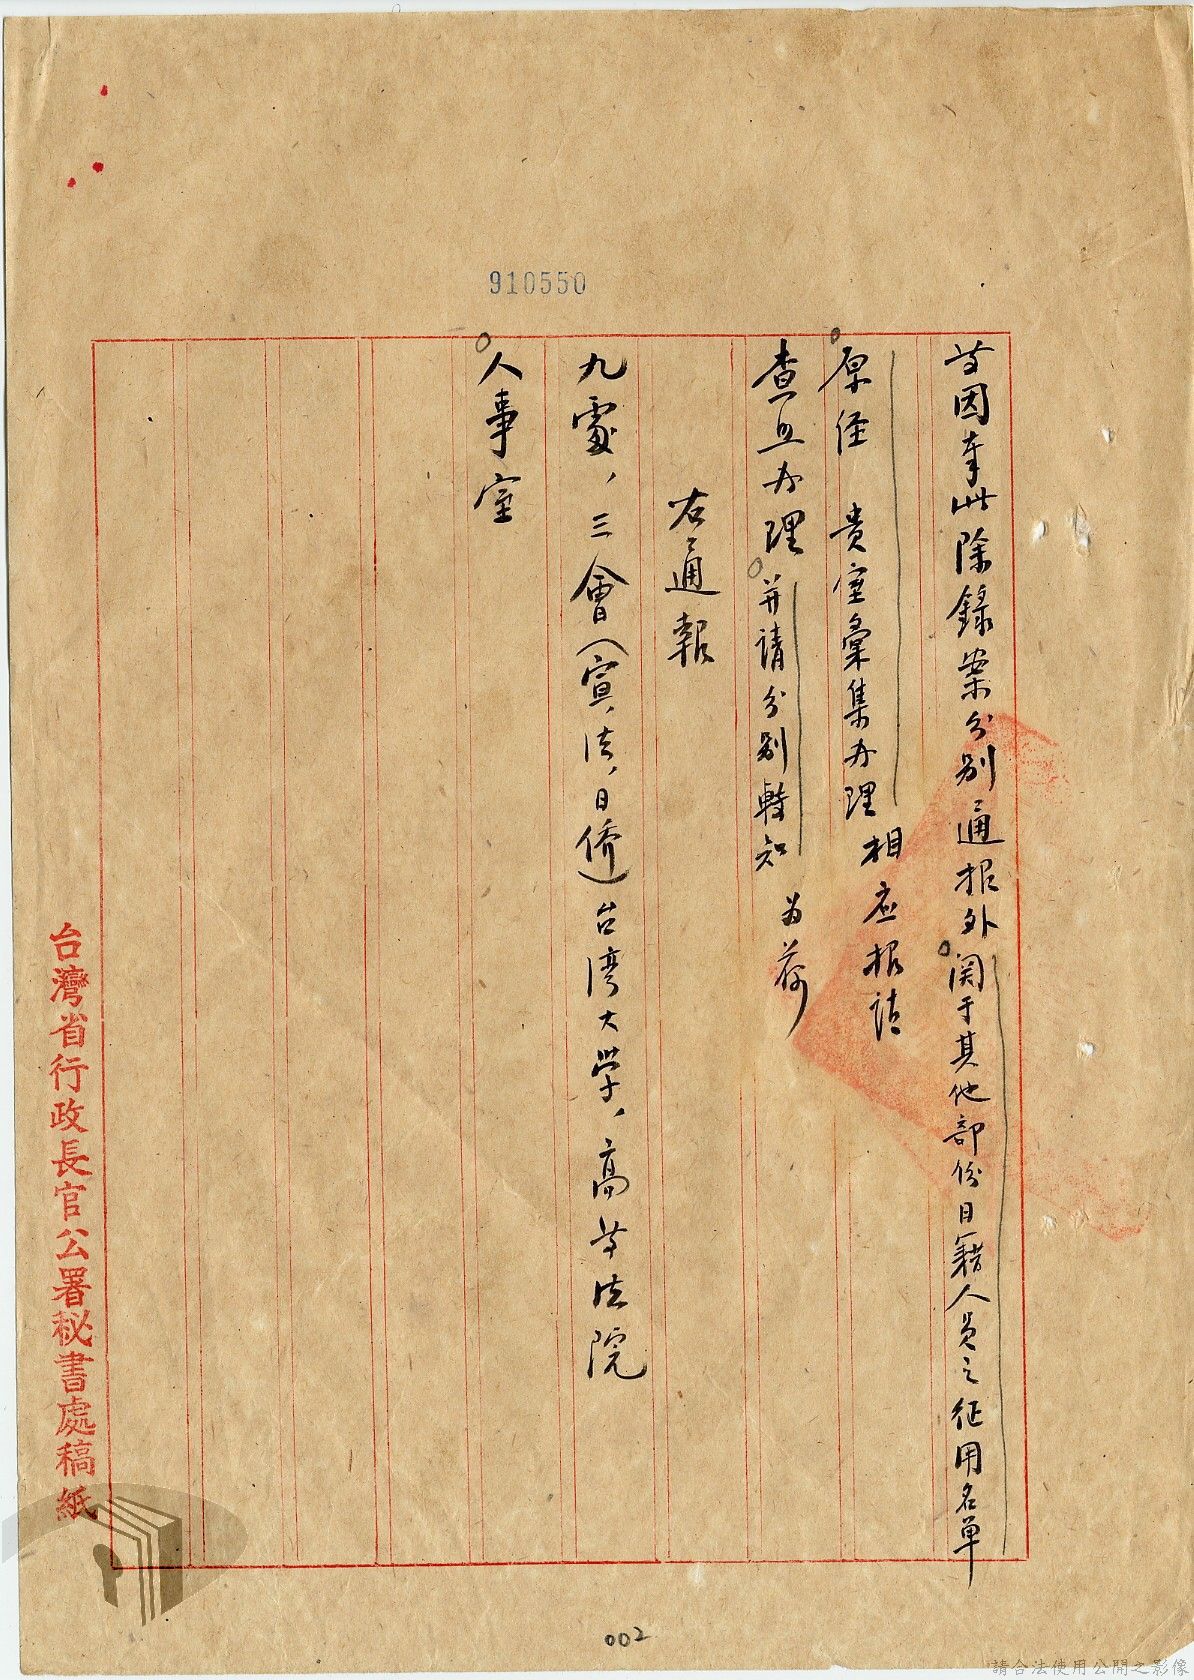 910550
等因奉此除錄案分别通报外関于其他部份日籍人員之征用名单
原径 貴室彙集办理相应报请
查照办理并请分别轉知为荷
右通報
九處、三會(宣、法、日僑)台湾大学、高等法院
人事室
台灣省行政長官公署秘書處稿紙
002
請合法使用公開之影像